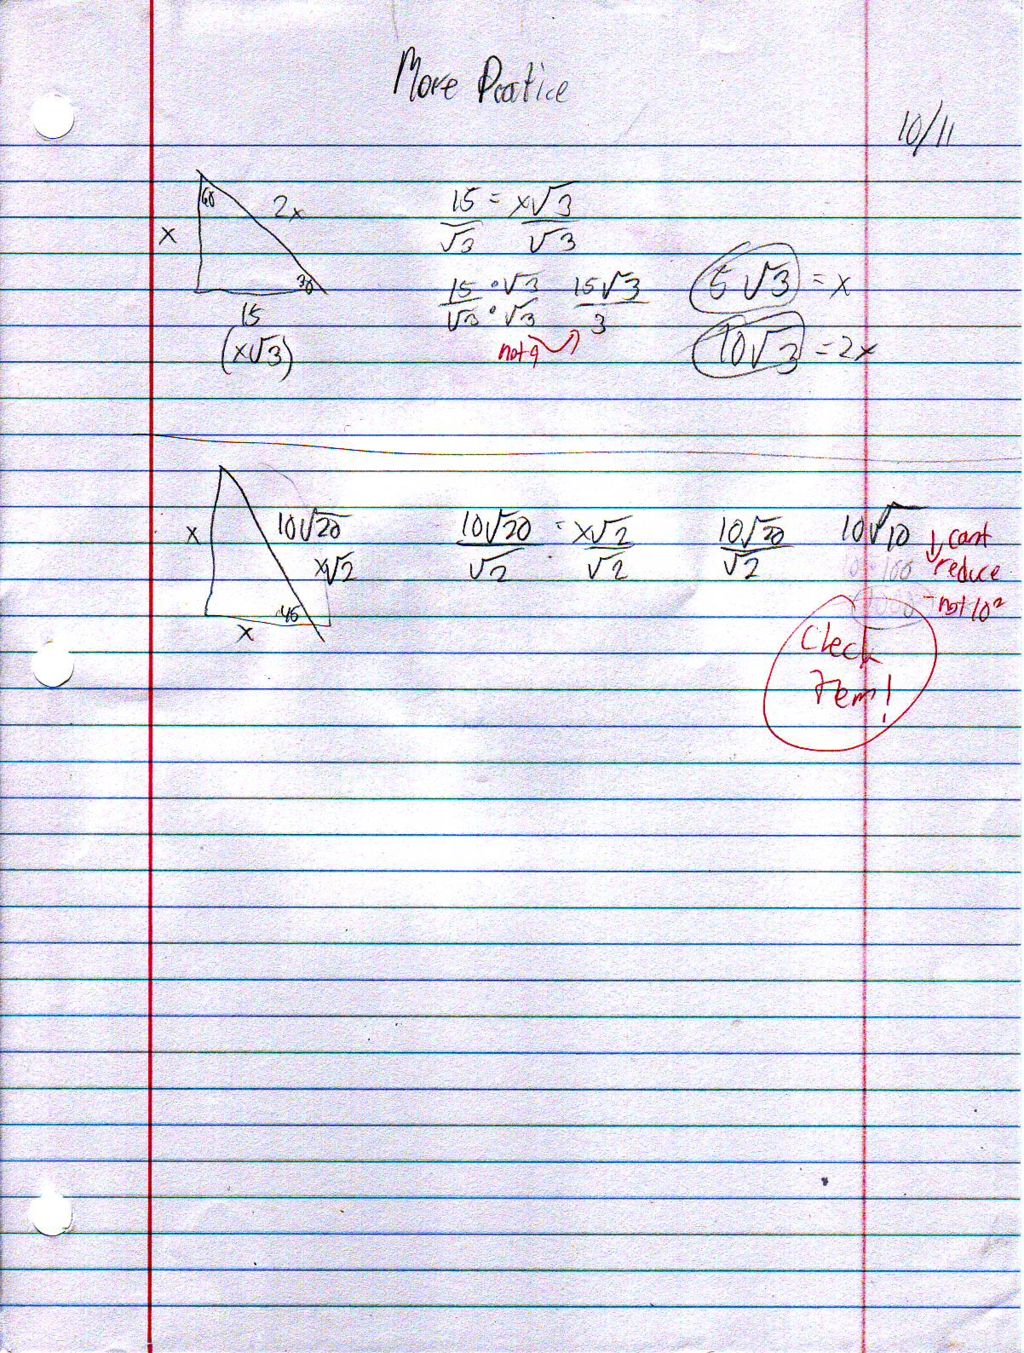 More Practice
10/11
60
2x
x
30
15
(x√3)
15/√3 = x√3/√3
15/√3 · √3/√3 15√3/3
not 9
5√3 = x
10√3 = 2x
x
10√20
x√2
45
x
10√20/√2 = x√2/√2
10√20/√2
10√10
cant
reduce
- not 10²
Check
Them!